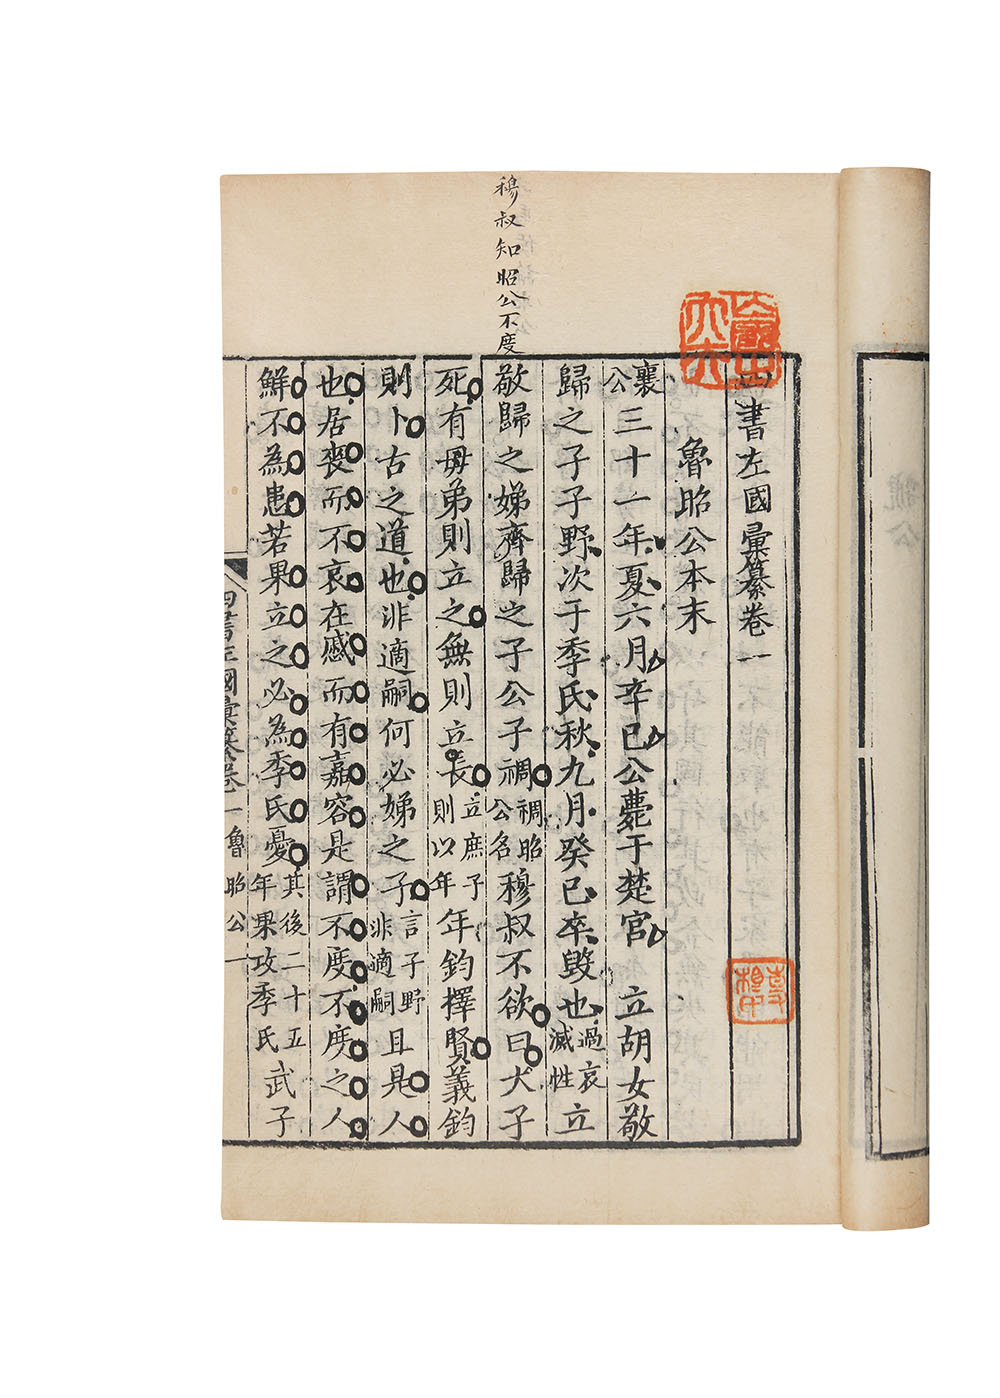 穆叔知昭公不度
四書左國彙纂卷一
魯昭公本末
襄公三十一年夏六月辛巳公薨于楚宮 立胡女敬
歸之子子野次于季氏秋九月癸巳卒毀也過哀滅性立
敬歸之娣齊歸之子公子禂禂昭公名穆叔不欲曰犬子
死有毋弟則立之無則立長立庶子則以年年鈞擇賢義鈞
則卜古之道也非適嗣何必娣之子言子野非適嗣且是人
也居喪而不哀在慼而有嘉容是謂不度不度之人
鮮不為患若果立之必為季氏憂其後二十五年果攻季氏武子
四書左國彙纂卷一 魯昭公 一